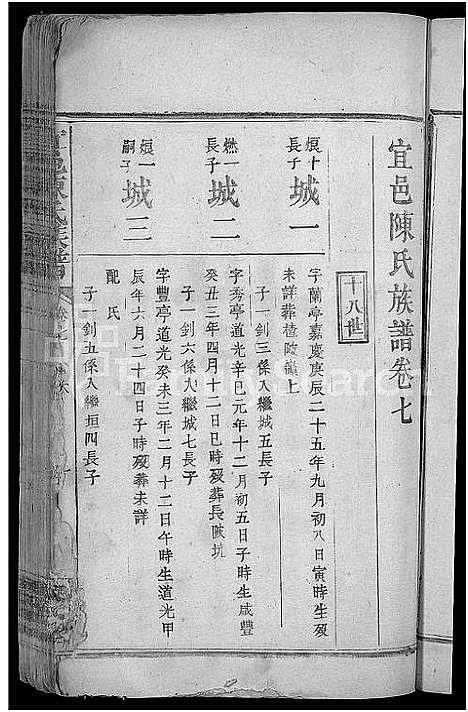 宜邑陳氏族譜卷七
十八世
煨十長子 城一
字蘭亭嘉慶庚辰二十五年九月初八日寅時生歿
未詳葬楂陂嶺上
子一釗三係入繼城五長子
燃一長子 城二
字秀亭道光辛巳元年十二月初五日子時生咸豐
癸丑三年四月十二日巳時歿葬長陂坑
子一釗六係入繼城七長子
煨一嗣子 城三
字豐亭道光癸未三年二月十二日午時生道光甲
辰年六月二十四日子時歿葬未詳
配氏
子一釗五係入繼垣四長子
宜邑陳氏族譜